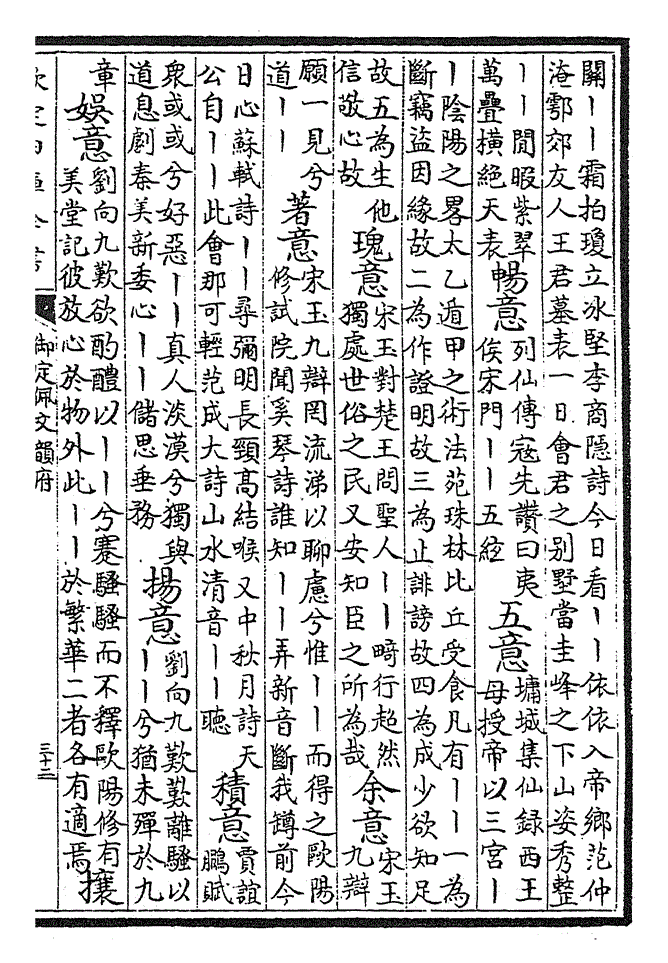 關丨丨霜拍瓊立冰堅李商隱詩今日看丨丨依依入帝鄉范仲
淹鄠郊友人王君墓表一日會君之别墅當圭峰之下山姿秀整
丨丨閒暇紫翠
萬疊橫絕天表
暢意
列仙傳寇先讚曰夷
俟宋門丨丨五絃
五意
墉城集仙録西王
母授帝以三宮丨
丨陰陽之畧太乙遁甲之術法苑珠林比丘受食凡有丨丨一為
斷竊盜因緣故二為作證明故三為止誹謗故四為成少欲知足
故五為生他
信敬心故
瑰意
宋玉對楚王問聖人丨丨畸行超然
獨處世俗之民又安知臣之所為哉
余意
宋玉
九辯
願一見兮
道丨丨
著意
宋玉九辯罔流涕以聊慮兮惟丨丨而得之歐陽
修試院聞奚琴詩誰知丨丨弄新音斷我罇前今
日心蘇軾詩丨丨尋彌明長頸高結喉又中秋月詩天
公自丨丨此會那可輕范成大詩山水清音丨丨聽
積意
賈誼
鵬賦
衆或或兮好惡丨丨真人淡漠兮獨與
道息劇秦美新委心丨丨儲思垂務
揚意
劉向九歎歎離騷以
丨丨兮猶未殫於九
章
娛意
劉向九歎欲酌醴以丨丨兮蹇騷騷而不釋歐陽修有
美堂記彼放心於物外此丨丨於繁華二者各有適焉
攘
御定佩文韻府
三十二